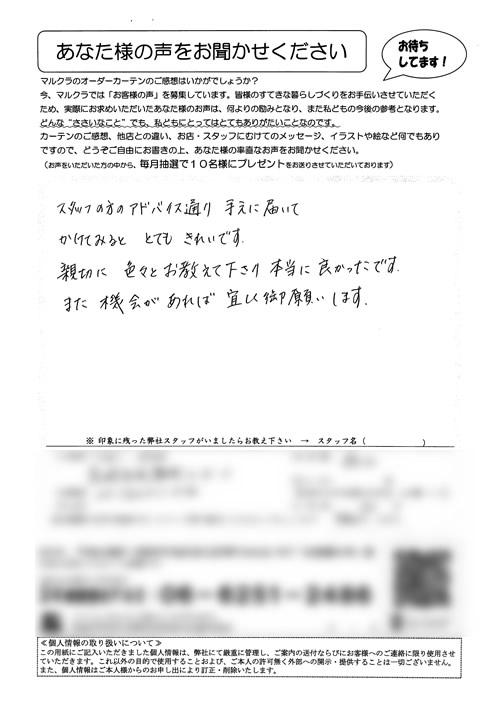 あなた様の声をお聞かせください
お待ち
してます！
マルクラのオーダーカーテンのご感想はいかがでしょうか？
今、マルクラでは「お客様の声」を募集しています。皆様のすてきな暮らしづくりをお手伝いさせていただく
ため、実際にお求めいただいたあなた様のお声は、何よりの励みとなり、また私どもの今後の参考となります。
どんな“ささいなこと”でも、私どもにとってはとてもありがたいことなのです。
カーテンのご感想、他店との違い、お店・スタッフにむけてのメッセージ、イラストや絵など何でもあり
ですので、どうぞご自由にお書きの上、あなた様の率直なお声をお聞かせください。
（お声をいただいた方の中から、毎月抽選で１０名様にプレゼントをお送りさせていただいております）
スタッフの方のアドバイス通り 手元に届いて
かけてみると とても きれいです。
親切に 色々とお教えて下さり 本当に 良かったです。
また 機会が あれば 宜しく御願いします。
※ 印象に残った弊社スタッフがいましたらお教え下さい → スタッフ名（ ）
06-6251-2486
≪個人情報の取り扱いについて≫
この用紙にご記入いただきました個人情報は、弊社にて厳重に管理し、ご案内の送付ならびにお客様へのご連絡に限り使用させ
ていただきます。これ以外の目的で使用することおよび、ご本人の許可無く外部への開示・提供することは一切ございません。
また、個人情報はご本人様からのお申し出により訂正・削除いたします。